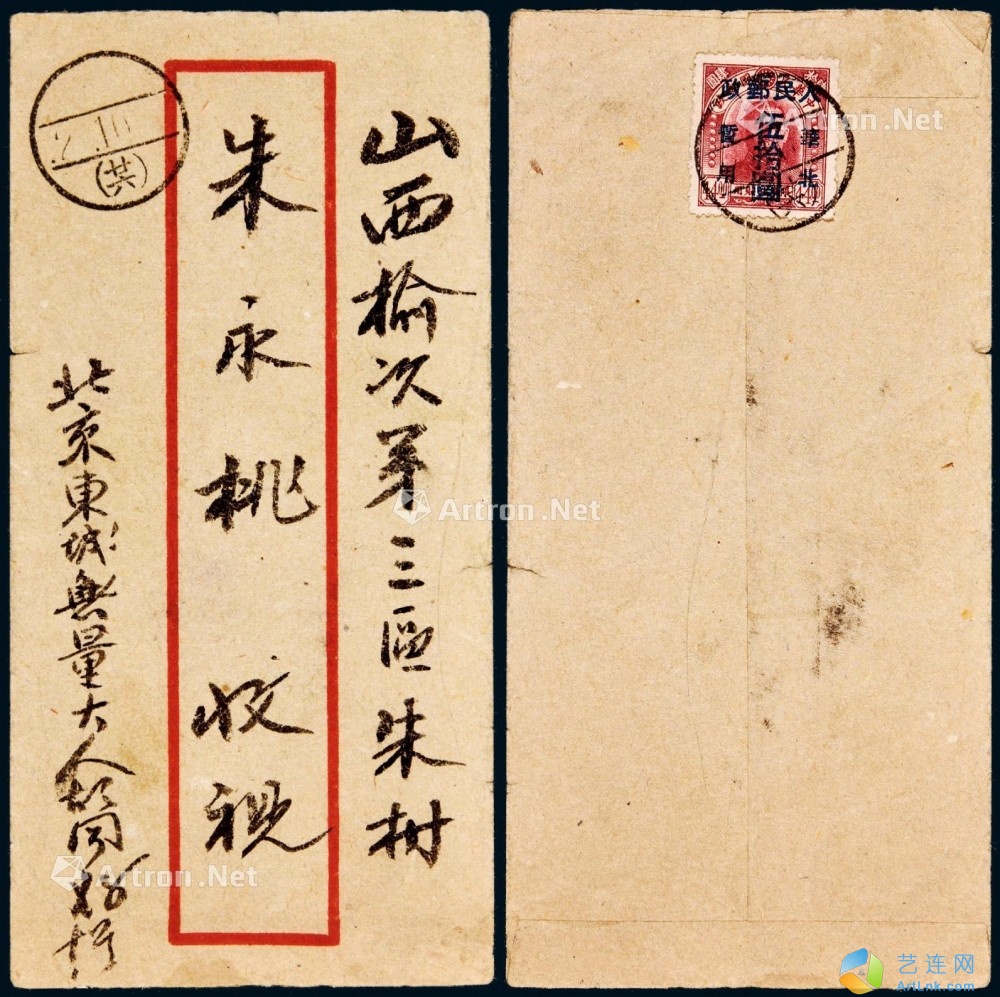 山西榆次第三區朱村
朱永桃收視
北京東城無量大人胡同
.2.10
(共)
人民郵政
華北
伍拾圓
暫用
Artron.Net
Artron.Net
Artron.Net
Artron.Net
Artron.Net
艺连网
ArtLnk.com